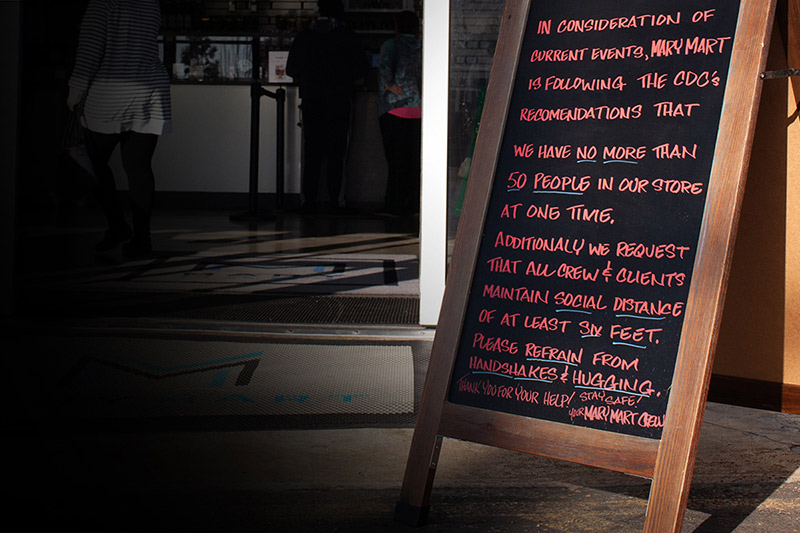 IN CONSIDERATION OF
CURRENT EVENTS, MARY MART
IS FOLLOWING THE CDC's
RECOMENDATIONS THAT
WE HAVE NO MORE THAN
50 PEOPLE IN OUR STORE
AT ONE TIME.
ADDITIONALY WE REQUEST
THAT ALL CREW & CLIENTS
MAINTAIN SOCIAL DISTANCE
OF AT LEAST SIX FEET.
PLEASE REFRAIN FROM
HANDSHAKES & HUGGING.
THANK YOU FOR YOUR HELP! STAY SAFE!
YOUR MARY MART CREW